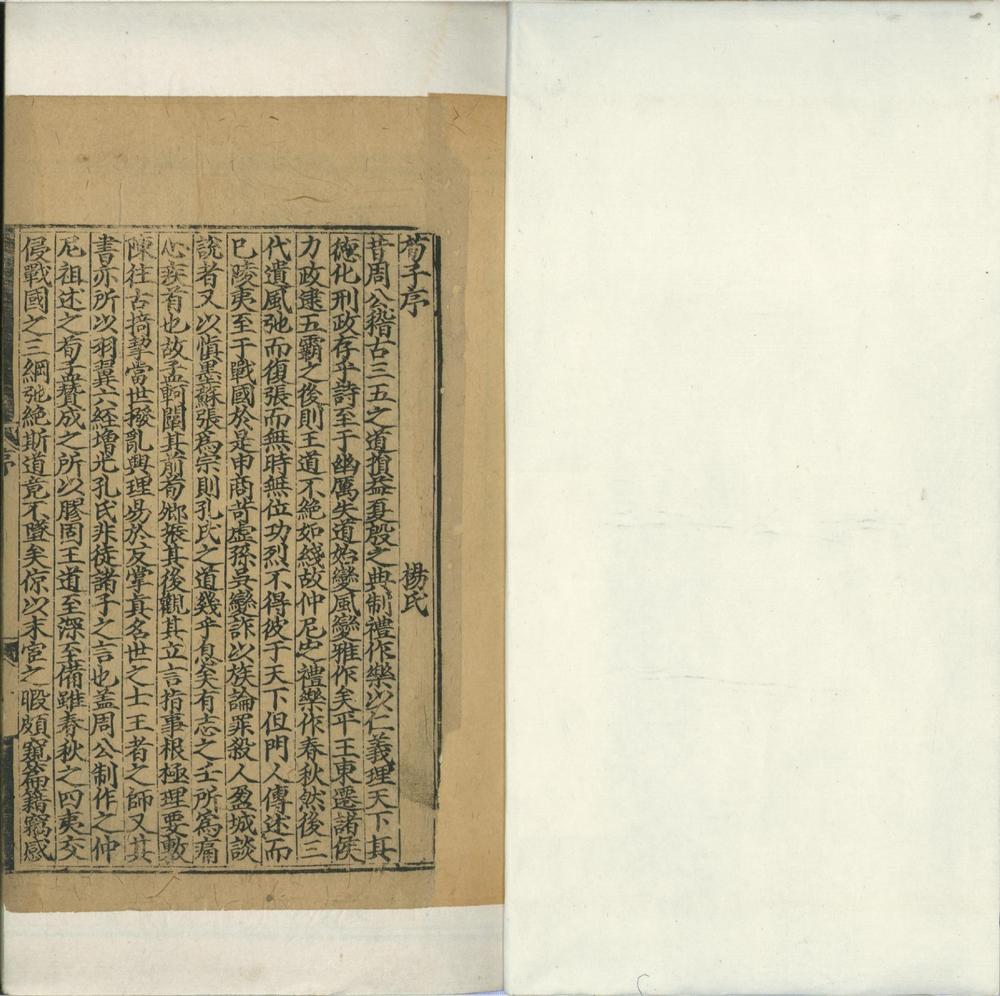 荀子序 楊氏
昔周公稽古三五之道損益夏殷之典制禮作樂以仁義理天下其
德化刑政存乎詩至于幽厲失道始變風變雅作矣平王東遷諸侯
力政逮五霸之後則王道不絕如綫故仲尼定禮樂作春秋然後三
代遺風弛而復張而無時無位功烈不得被于天下但門人傳述而
已陵夷至于戰國於是申商苛虐孫吳變詐以族論罪殺人盈城談
說者又以慎墨蘇張爲宗則孔氏之道幾乎息矣有志之士所爲痛
心疾首也故孟軻闢其前荀卿振其後觀其立言指事根極理要敷
陳往古掎挈當世撥亂興理易於反掌真名世之士王者之師又其
書亦所以羽翼六經增光孔氏非徒諸子之言也蓋周公制作之仲
尼祖述之荀孟賛成之所以膠固王道至深至備雖春秋之四夷交
侵戰國之三綱弛絕斯道竟不墜矣倞以末宦之暇頗窺篇籍竊感
序